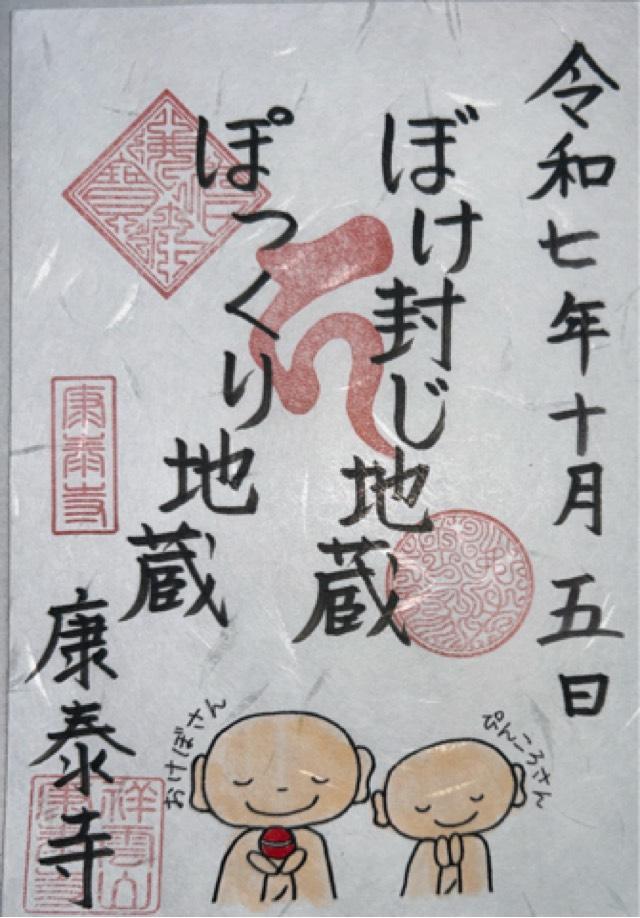 令和七年十月五日
ぼけ封じ地蔵
ぽっくり地蔵
康泰寺
康泰寺
ぴんころさん
おけぼさん